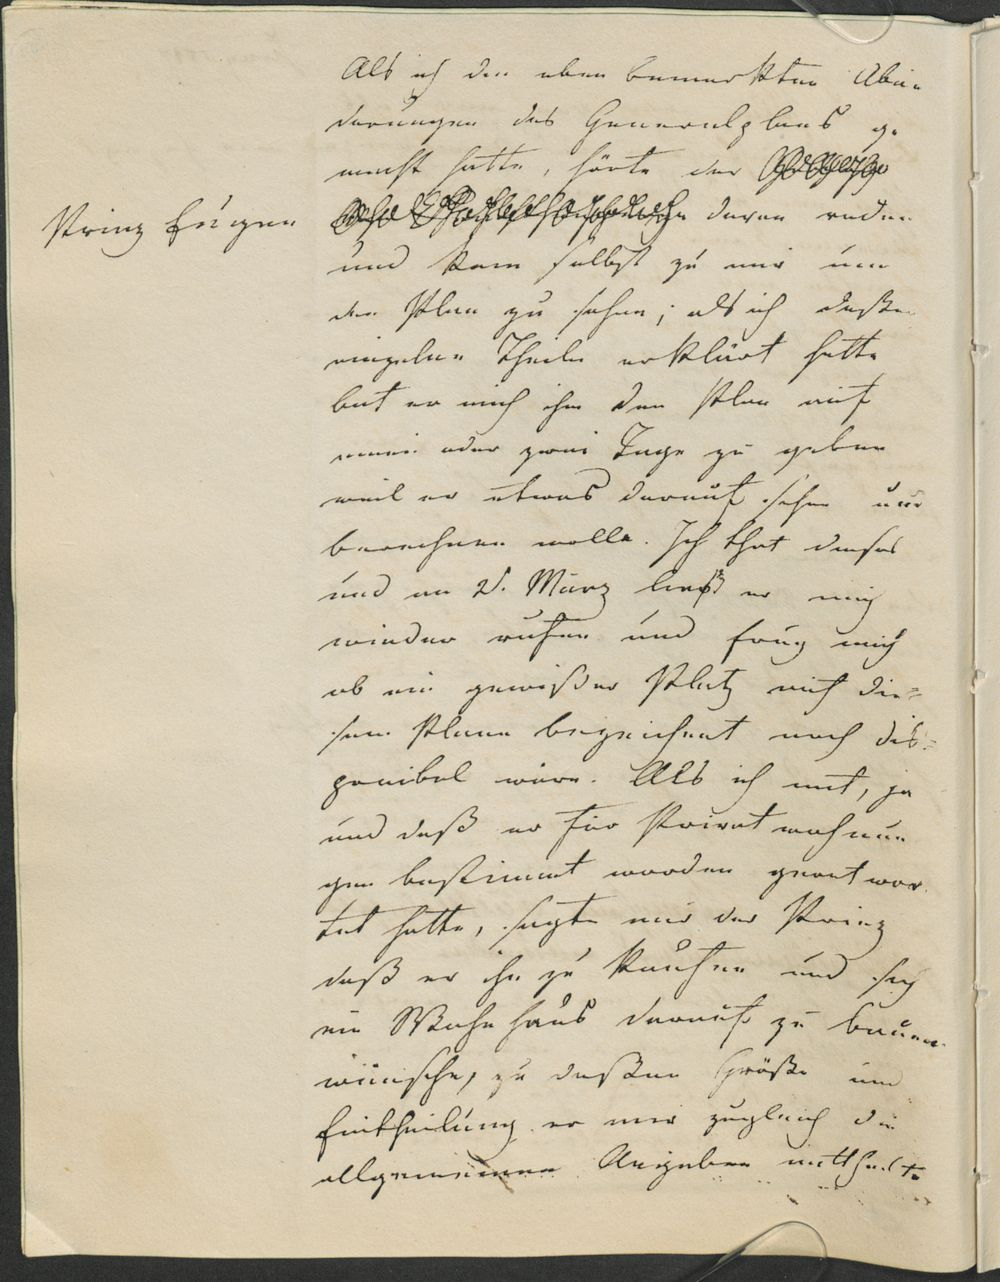 Als ich die eben bemerkten Abän-
derungen des Generalplans ge
macht hatte, hörte der
Prinz Eugen
davon reden
und kam selbst zu mir um
den Plan zu sehen; als ich deßen
einzelne Theile erklärt hatte
bat er mich ihm den Plan auf
einen oder zwei Tage zu geben
weil er etwas darauf sehen und
berechnen wolle. Ich that dieses
und am 2. März ließ er mich
wieder rufen und frug mich
ob ein gewißer Platz auf die=
sem Plane bezeichnet noch dis=
ponibel wäre. Als ich mit, ja
und daß er für Privatwohnun
gen bestimmt worden geantwor
tet hatte, sagte mir der Prinz
daß er ihn zu kaufen und sich
ein Wohnhaus darauf zu bauen
wünsche, zu deßen Größe und
Eintheilung er mir zugleich die
allgemeinen Angaben mittheilte